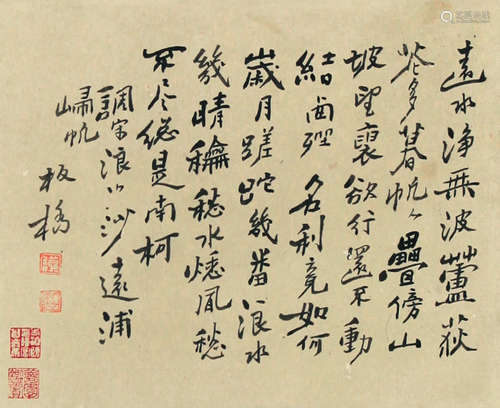 遠水淨無波蘆荻
花多暮帆疊傍山
坡望裏欲行還不動
名利竟如何
歲月蹉跎幾番浪
幾晴龢愁水愁風愁
不尽總是南柯
調寄浪沙遠浦
歸帆
板橋